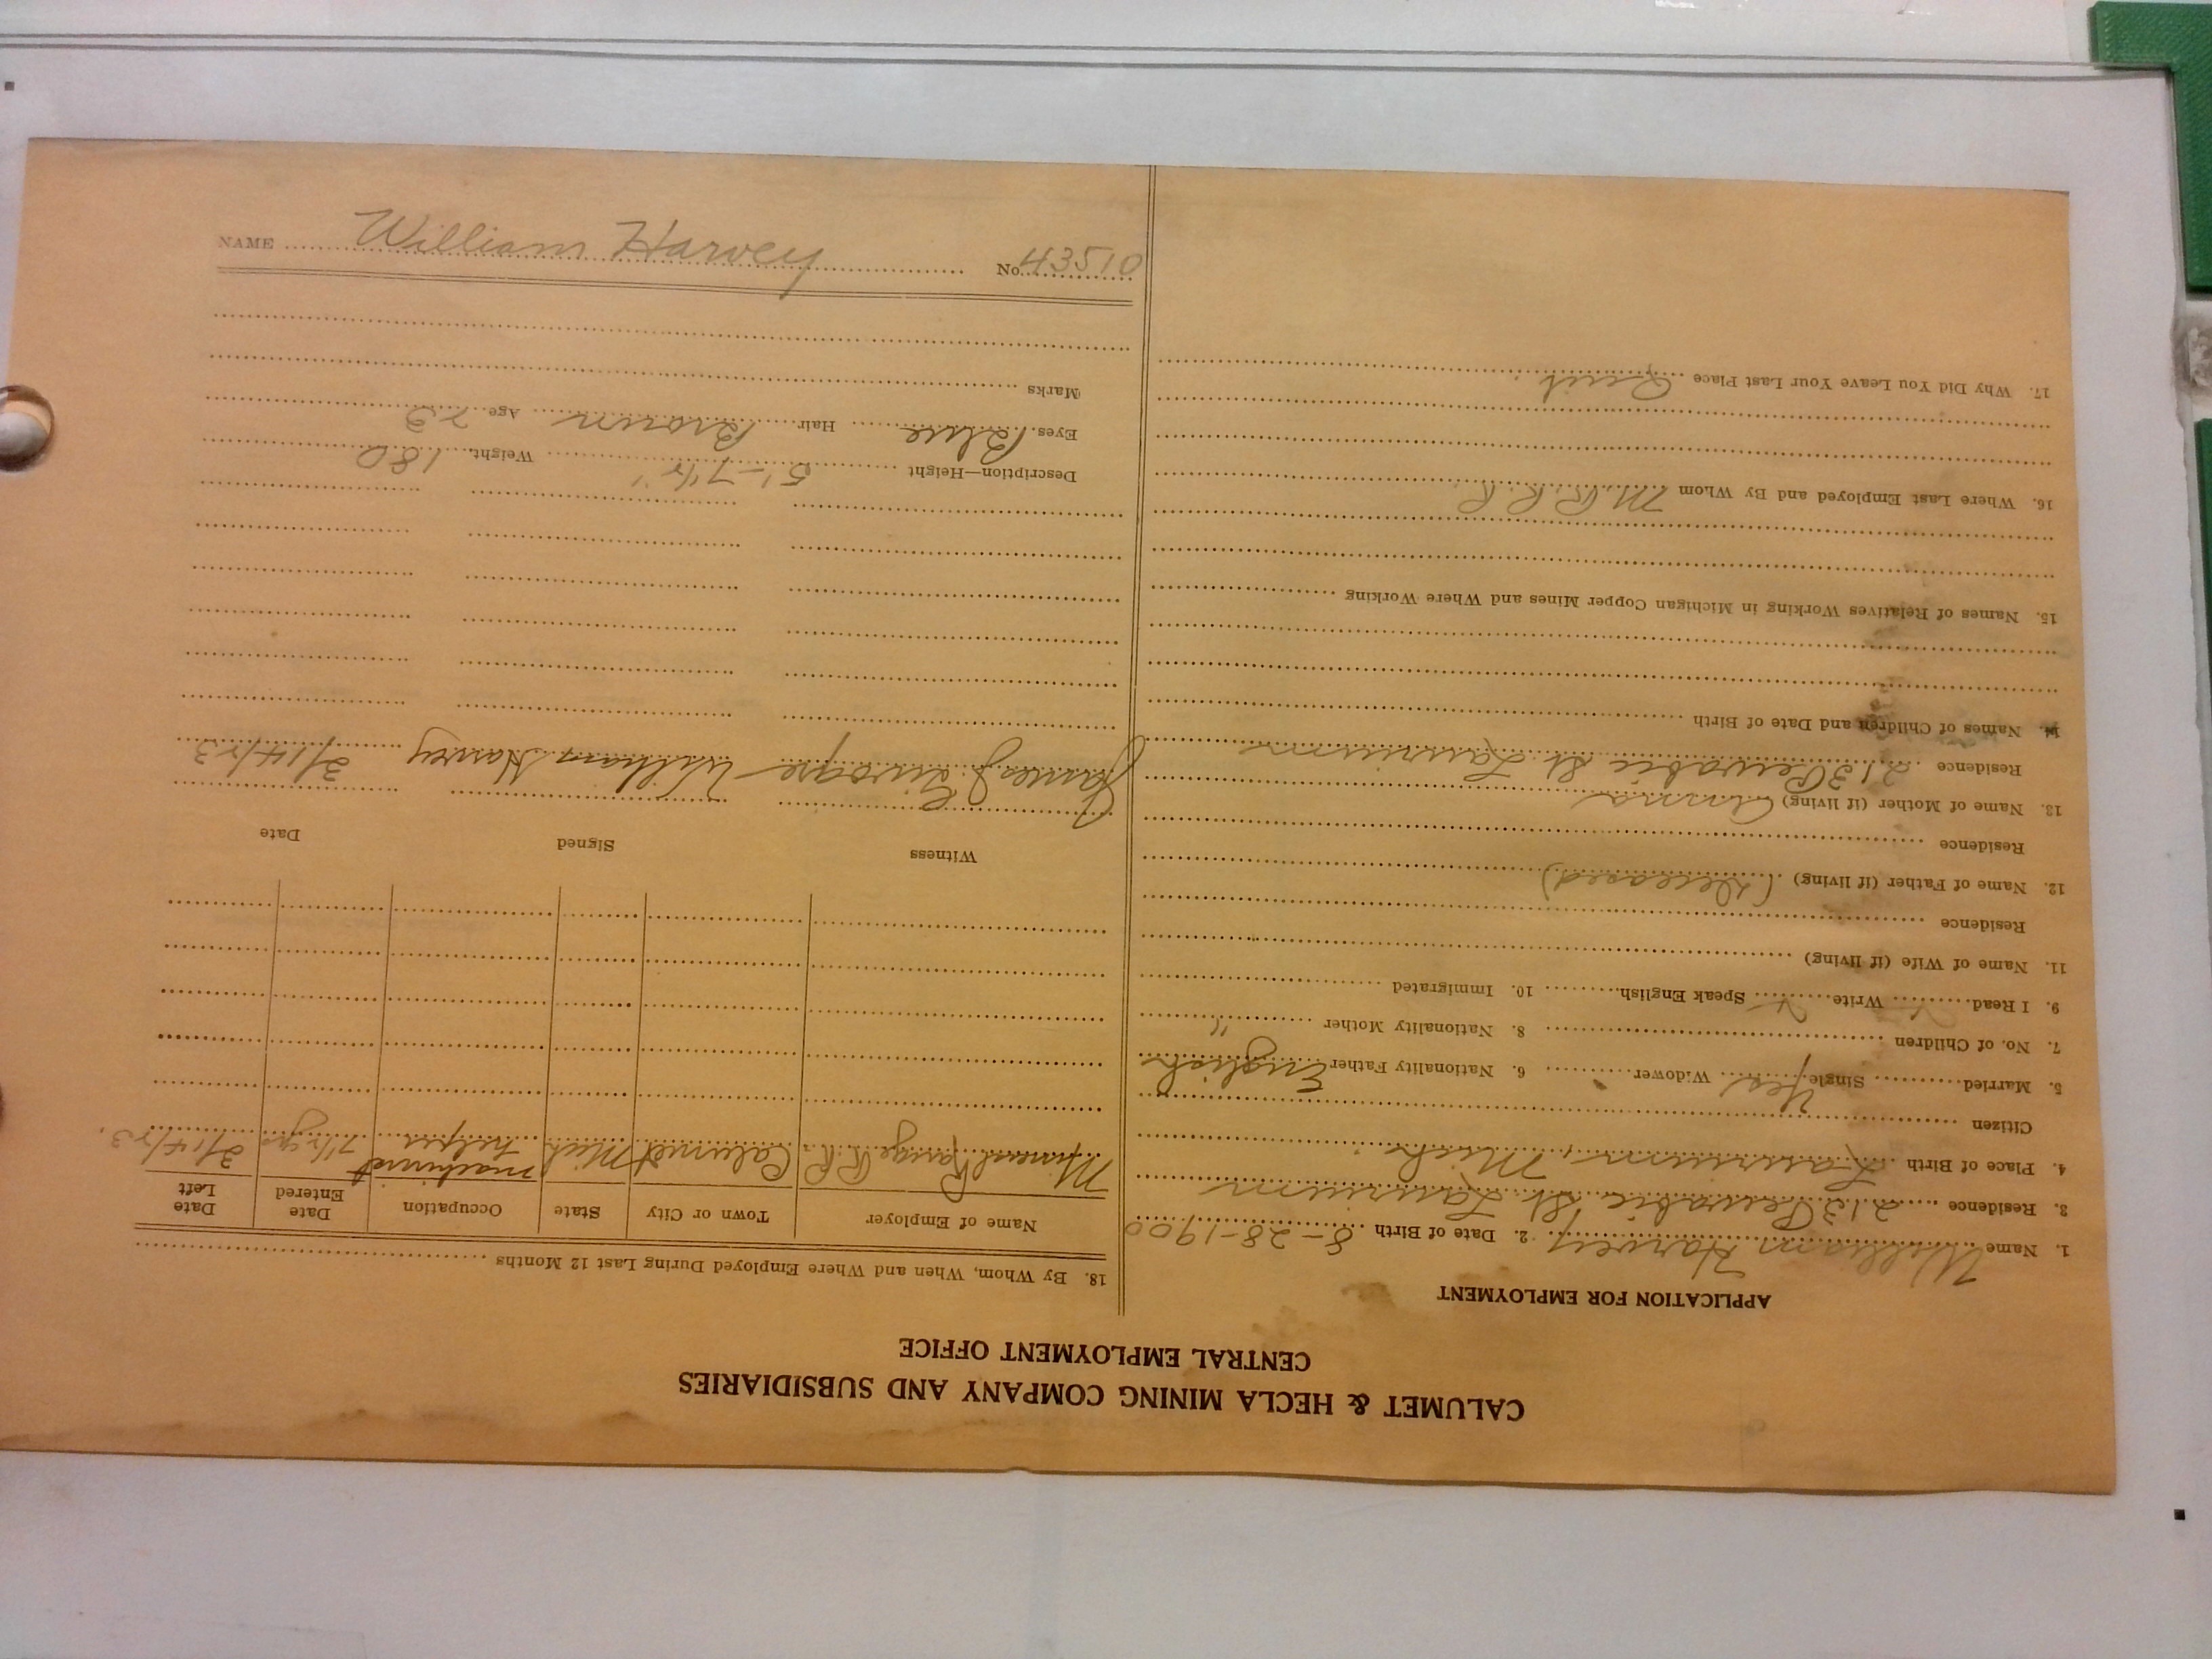 CALUMET & HECLA MINING COMPANY AND SUBSIDIARIES
CENTRAL EMPLOYMENT OFFICE
APPLICATION FOR EMPLOYMENT
1. Name William Harvey 2. Date of Birth 8-28-1900
3. Residence 213 Pewabic St. Laurium
4. Place of Birth Laurium, Mich.
Citizen
5. Married Single Yes Widower 6. Nationality Father English
7. No. of Children 8. Nationality Mother "
9. I Read Write Speak English 10. Immigrated
11. Name of Wife (if living)
Residence
12. Name of Father (if living) (Deceased)
Residence
13. Name of Mother (if living) Anna
Residence 213 Pewabic St. Laurium
14. Names of Children and Date of Birth
15. Names of Relatives Working in Michigan Copper Mines and Where Working
16. Where Last Employed and By Whom M. R. R. R.
17. Why Did You Leave Your Last Place Quit.
18. By Whom, When and Where Employed During Last 12 Months
Name of Employer Town or City State Occupation Date Entered Date Left
Mineral Range R.R. Calumet Mich machinist helper 3/14/23.
Witness Signed Date
James J. William Harvey 3/14/23
Description—Height 5'-7½" Weight 180
Eyes Blue Hair Brown Age 23
Marks
NAME William Harvey No. 43510